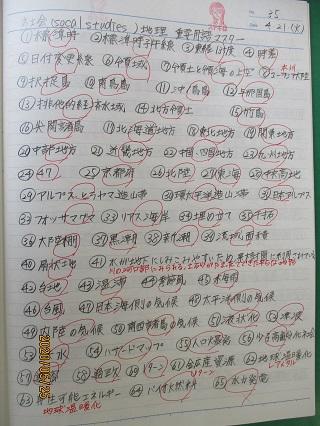 35
社会(socal studies)地理 重要用語マスター 4.21(火)
①標準時 ②標準時子午線 ③東経135度 ④時差
⑤日付変更線 ⑥領域 ⑦領土と領海の上空
⑨択捉島 ⑩南鳥島 ⑪沖ノ鳥島 ⑫与那国島
⑬排他的経済水域 ⑭北方領土 ⑮竹島
⑯尖閣諸島 ⑰北海道地方 ⑱東北地方 ⑲関東地方
⑳中部地方 ㉑近畿地方 ㉒中国・四国地方 ㉓九州地方
㉔47 ㉕京都府 ㉖北陸 ㉗東海 ㉘中央高地
㉙アルプス・ヒマラヤ造山帯 ㉚環太平洋造山帯 ㉛日本アルプス
㉜フォッサマグナ ㉝リアス海岸 ㉞埋め立て ㉟干拓
㊱大陸棚 ㊲黒潮 ㊳親潮 ㊴流域面積
㊵扇状土地 ㊶水が地下にしみこみやすいため果樹園に利用されている
㊷台地 ㊸湿潤 ㊹季節風 ㊺梅雨
㊻台風 ㊼日本海側の気候 ㊽太平洋側の気候
㊾内陸の気候 ㊿南西諸島の気候 51液状化 52津波
54ハザードマップ 55人口爆発 56少子高齢化社会
59Iターン Uターン 62地球温暖化 レアメタル
63再生可能エネルギー 64バイオ燃料 65水力発電
地球温暖化